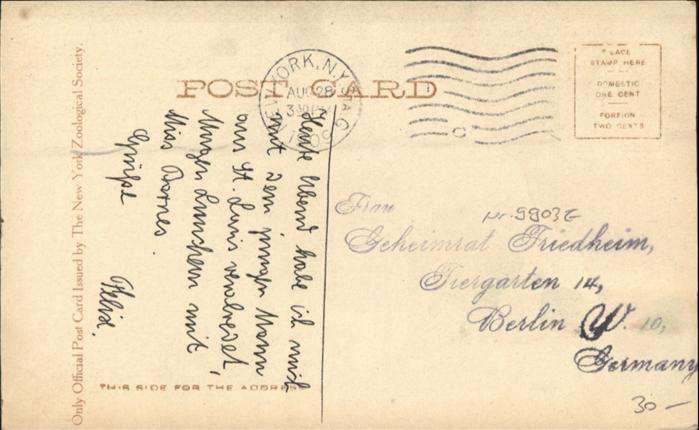 POST CARD
NEW YORK, N.Y. STA. G
AUG 28
1909
PLACE
STAMP HERE
DOMESTIC
ONE CENT
FOREIGN
TWO CENTS
Only Official Post Card Issued by The New York Zoological Society.
Heute Abend habe ich mich
mit dem jungen Mann
aus St. Louis verabredet,
Morgen Lunchen mit
Miss Barnes.
Grüße
Felix.
Frau
nr. 5903E
Geheimrat Friedheim,
Tiergarten 14,
Berlin W. 10,
Germany
THIS SIDE FOR THE ADDRESS
30 —